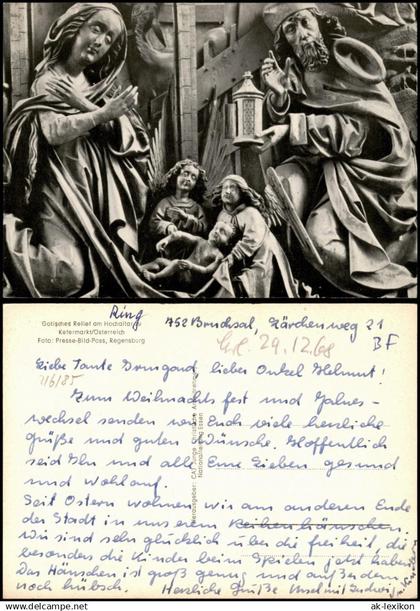 Gotisches Relief am Hochaltar zu
Kefermarkt/Österreich
Foto: Presse-Bild-Poss, Regensburg
Ring
752 Bruchsal, Lärchenweg 21
29.12.68
BF
Liebe Tante Irmgard, lieber Onkel Helmut!
7/6/85
Zum Weihnachtsfest und Jahres-
wechsel senden wir Euch viele herzliche
Grüße und guten Wünsche. Hoffentlich
seid Ihr und alle Eure Lieben gesund
und wohlauf.
Seit Ostern wohnen wir am anderen Ende
der Stadt in unserem Reihenhäuschen.
Wir sind sehr glücklich über die Freiheit, die
besonders die Kinder beim Spielen jetzt haben.
Das Häuschen ist groß genug und außerdem
noch hübsch. Herzliche Grüße Ursel mit Ludwig
ak-lexikon.com